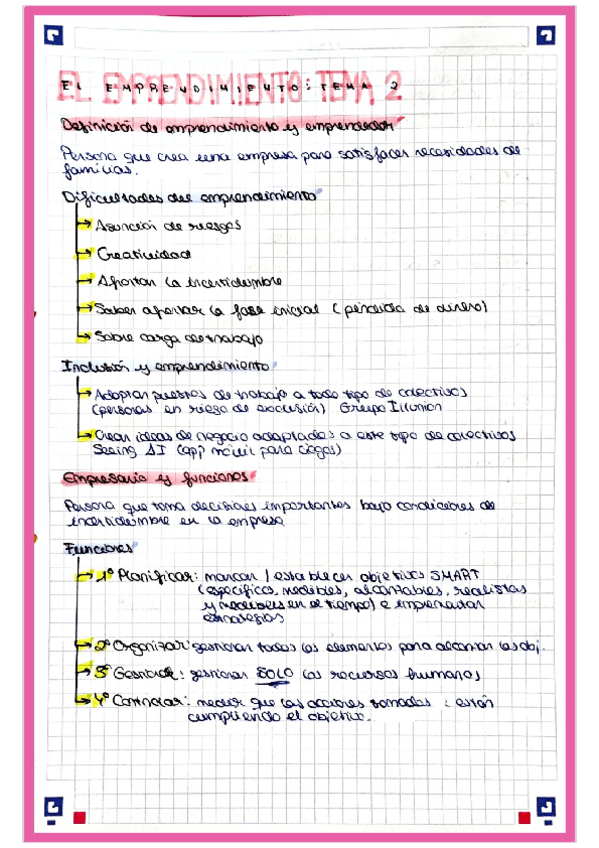 EL EMPRENDIMIENTO: TEMA 2
Definición de emprendimiento y emprendedor
Persona que crea una empresa para satisfacer necesidades de
familias.
Dificultades del emprendimiento
→ Asunción de riesgos
→ Creatividad
→ Afrontan la incertidumbre
→ Saber afrontar la fase inicial (pérdida de dinero)
→ Sobre carga de trabajo
Inclusión y emprendimiento
→ Adaptar puestos de trabajo a todo tipo de colectivos
(personas en riesgo de exclusión) Grupo Illunion
→ Crear ideas de negocio adaptadas a este tipo de colectivos
Seeing AI (app móvil para ciegos)
Empresario y funciones
Persona que toma decisiones importantes bajo condiciones de
incertidumbre en la empresa
Funciones
→ 1º Planificar: marcar / establecer objetivos SMART
(específicos, medibles, alcanzables, realistas
y medibles en el tiempo) e implementar
estrategias
→ 2º Organizar: gestionar todos los elementos para alcanzar los obj.
→ 3º Gestionar: gestionar SOLO los recursos humanos
→ 4º Controlar: medir que las acciones tomadas : están
cumpliendo el objetivo.